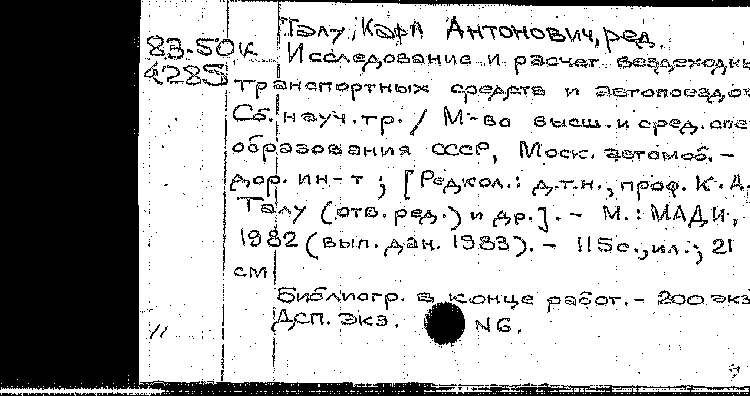 Талу, Карл Антонович, ред.
83-50к Исследование и расчет вездеходн
4285 транспортных средств и автопоездо
Сб. науч. тр. / М-во высш. и сред. спе
образования СССР, Моск. автомоб. -
дор. ин-т ; [Редкол.: д.т.н., проф. К.А.
Талу (отв. ред.) и др.]. - М.: МАДИ,
1982 (вып. дан. 1983). - 115с., ил.; 21
см
Библиогр. в конце работ. - 200 экз
ДСП. Экз. N6.